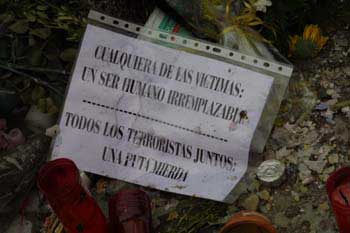 CUALQUIERA DE LAS VICTIMAS:
UN SER HUMANO IRREMPLAZABLE
TODOS LOS TERRORISTAS JUNTOS:
UNA PUTA MIERDA